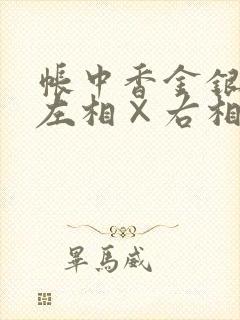 帳中香金銀
左相×右相
畢馬威